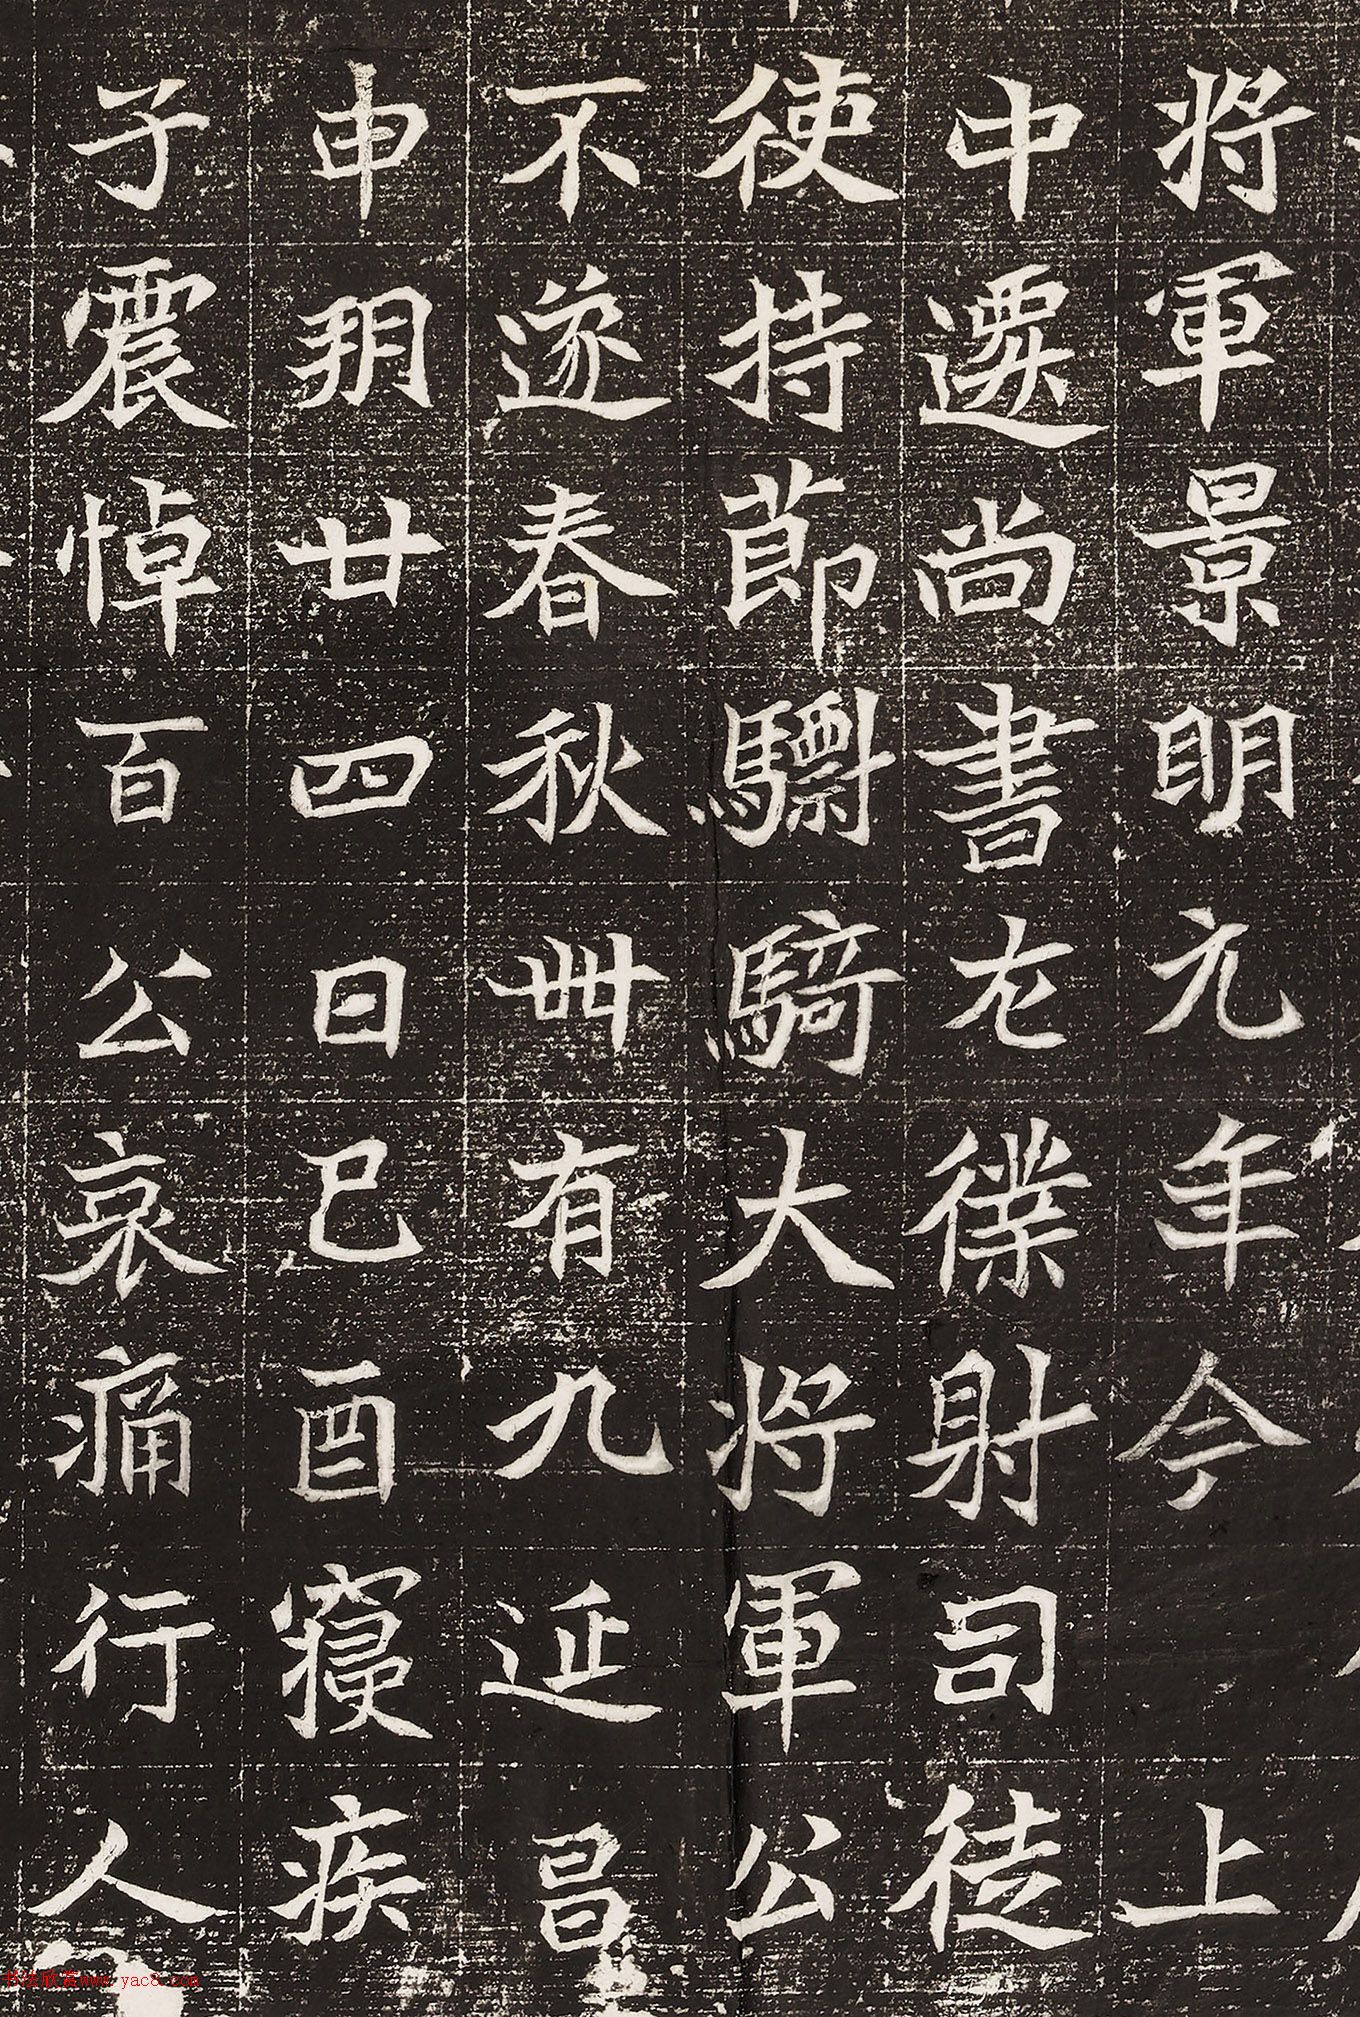 将軍景明元年今上
中遷尚書左僕射司徒
使持節驃騎大将軍公
不遂春秋卌有九延昌
申朔廿四日己酉寢疾
子震悼百公哀痛行人
书法欣赏www.yac8.com